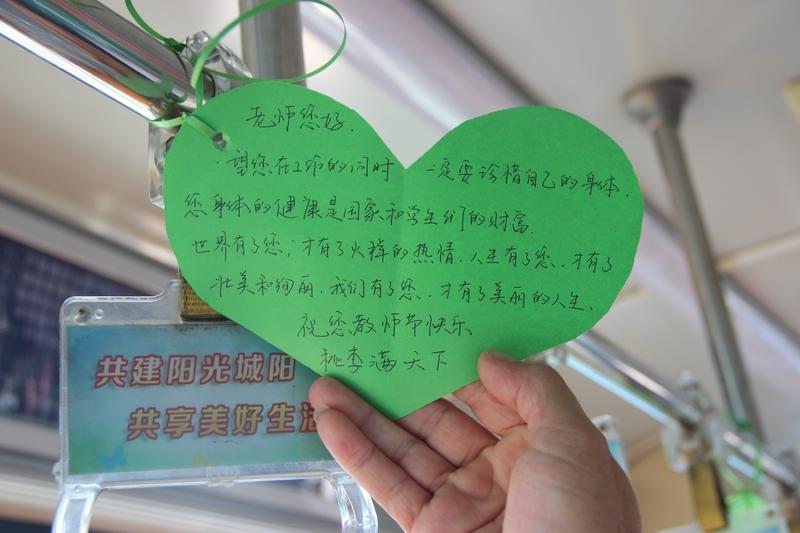 老师您好.
望您在工作的同时 一定要珍惜自己的身体.
您身体的健康是国家和学生们的财富.
世界有了您;才有了火样的热情.人生有了您..才有了
壮美和绚丽.我们有了您..才有了美丽的人生.
祝您教师节快乐
桃李满天下
共建阳光城阳
共享美好生活